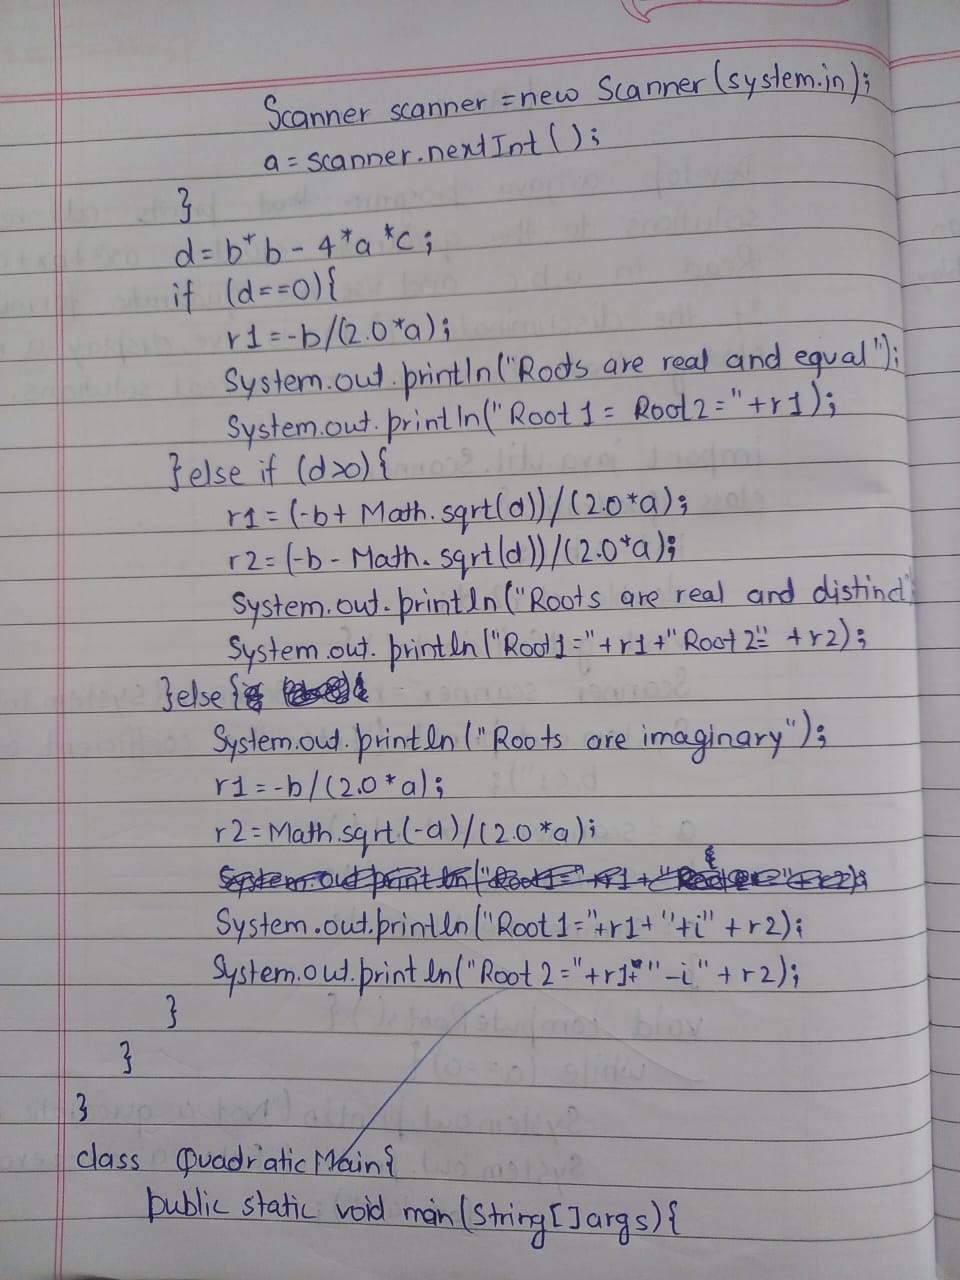 Scanner scanner = new Scanner(system.in);
a = scanner.nextInt();
}
d = b*b - 4*a*c;
if (d==0){
r1=-b/(2.0*a);
System.out.println("Roots are real and equal");
System.out.println("Root 1 = Root2="+r1);
}else if (d>0){
r1 = (-b+ Math.sqrt(d))/(2.0*a);
r2= (-b - Math.sqrt(d))/(2.0*a);
System.out.println("Roots are real and distinct"
System.out.println("Root1="+r1+"Root 2=" +r2);
}else{
System.out.println("Roots are imaginary");
r1 = -b/(2.0*a);
r2=Math.sqrt(-d)/(2.0*a);
System.out.println("Root 1="+r1+ "+i" +r2);
System.out.println("Root 2="+r1+"-i"+r2);
}
}
}
class QuadraticMain{
public static void main(String[]args){